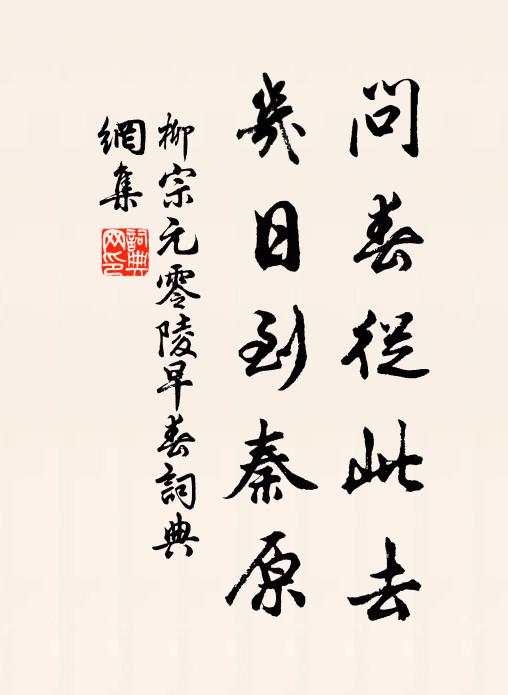 問春從此去
幾日到秦原
柳宗元零陵早春詞典
網集
詞典
网印